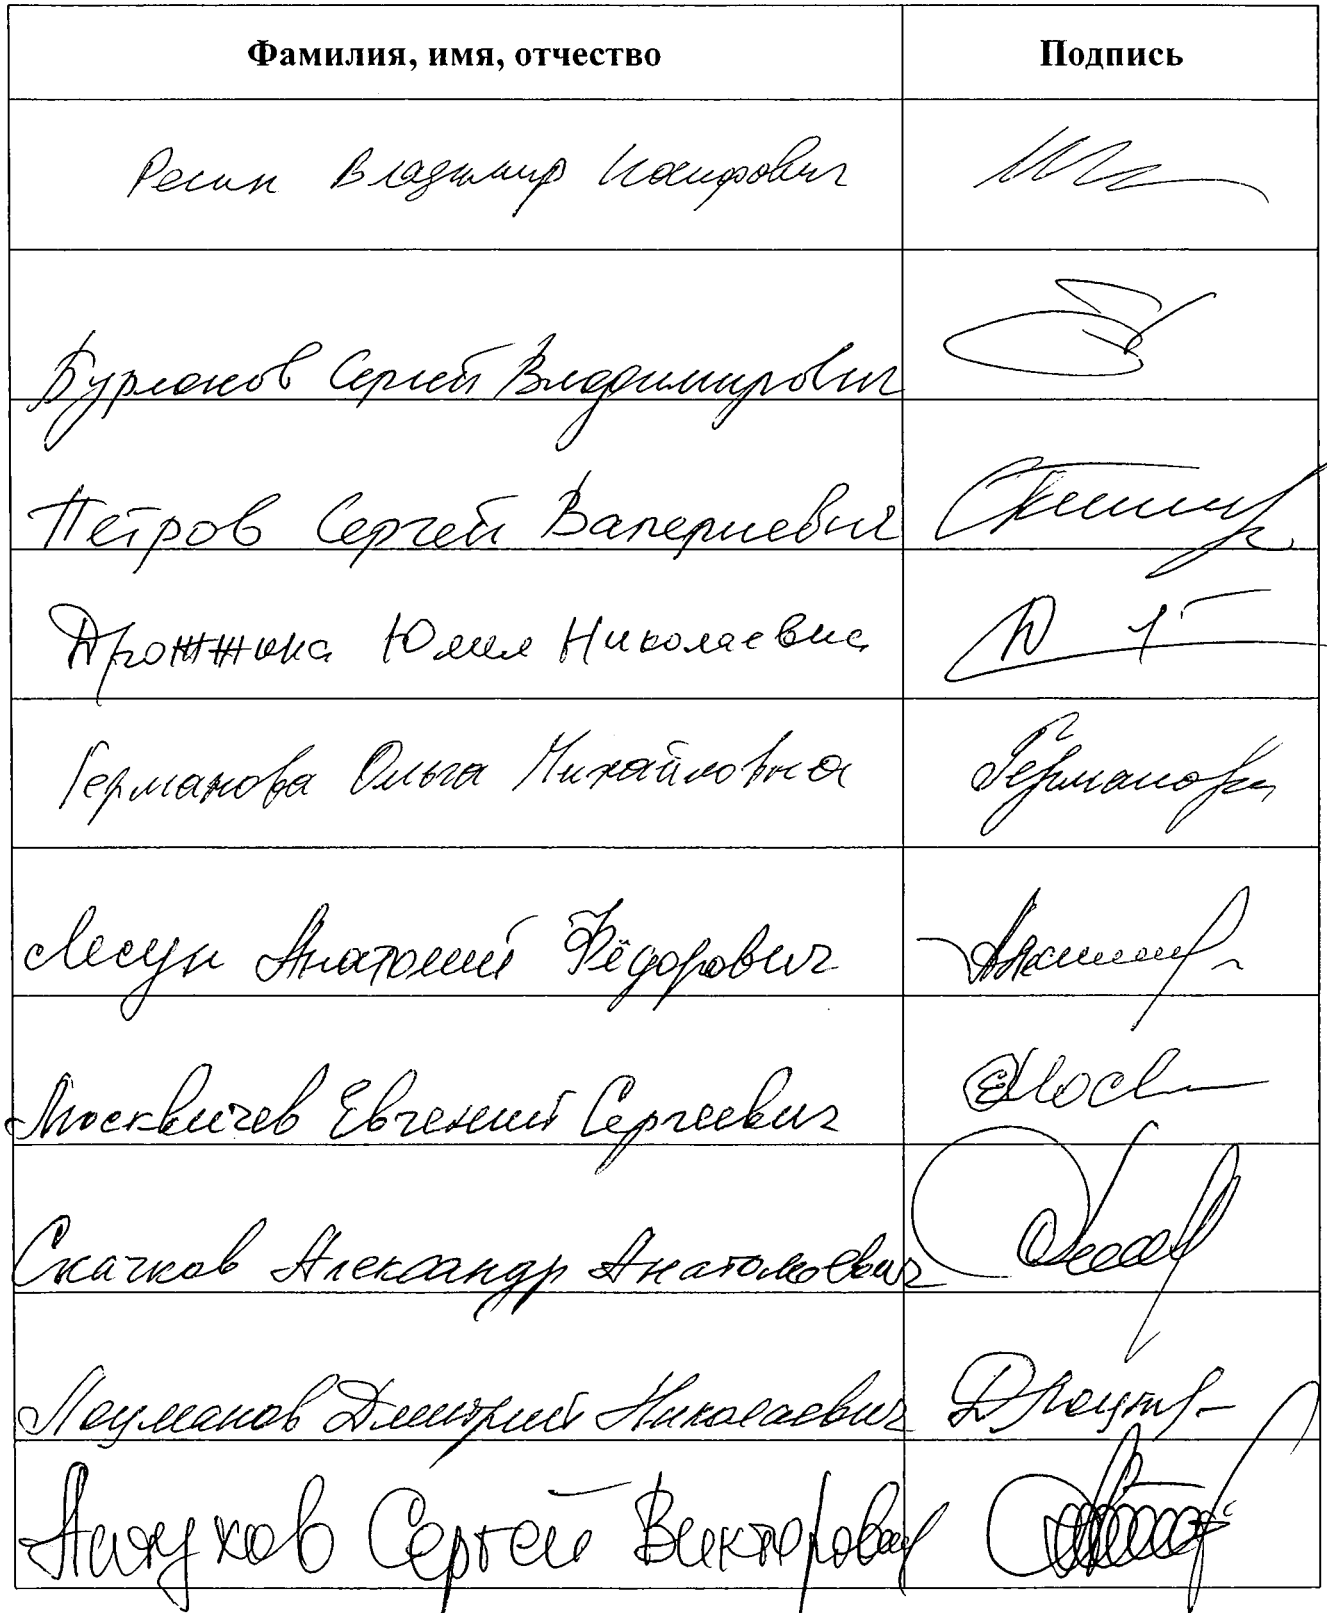 Фамилия, имя, отчество Подпись
Ресин Владимир Иосифович
Бурлаков Сергей Владимирович
Петров Сергей Валериевич
Дрожжина Юлия Николаевна
Германова Ольга Михайловна Германова
Лесун Анатолий Фёдорович
Москвичев Евгений Сергеевич
Скачков Александр Анатольевич
Дмитрий Николаевич
Алтухов Сергей Викторович